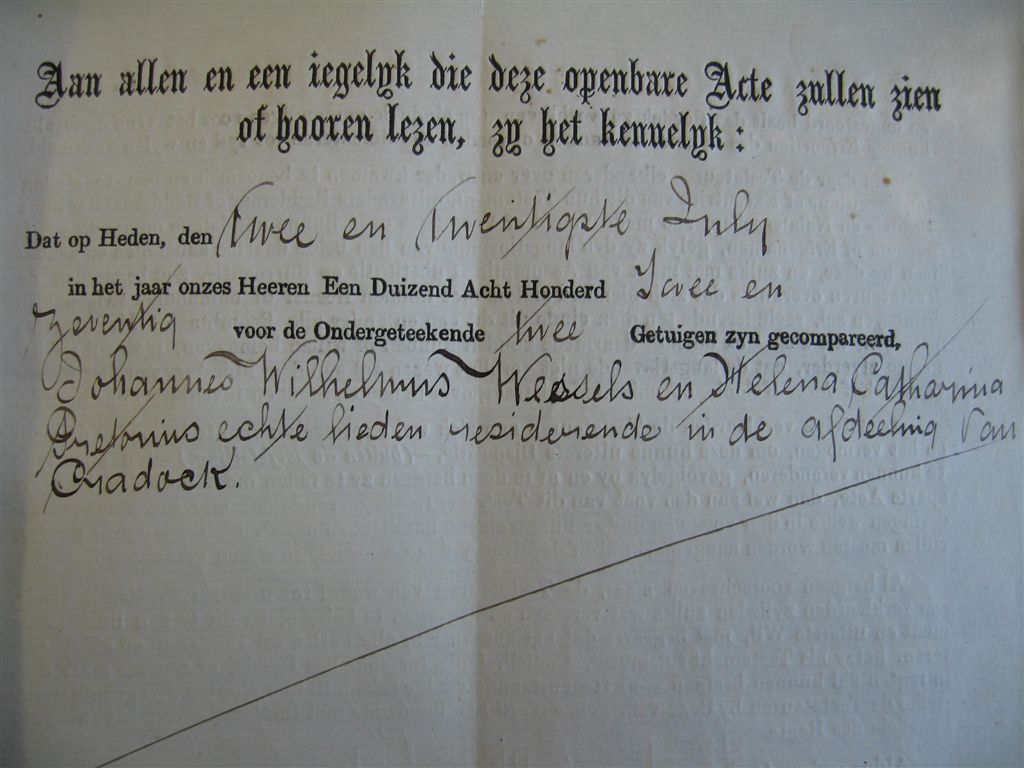 Aan allen en een iegelyk die deze openbare Acte zullen zien
of hooren lezen, zy het kennelyk:
Dat op Heden, den Twee en Twentigste July
in het jaar onzes Heeren Een Duizend Acht Honderd Twee en
Zeventig voor de Ondergeteekende twee Getuigen zyn gecompareerd,
Johannes Wilhelmus Wessels en Helena Catharina
Pretorius echte lieden residerende in de afdeeling van
Cradock.